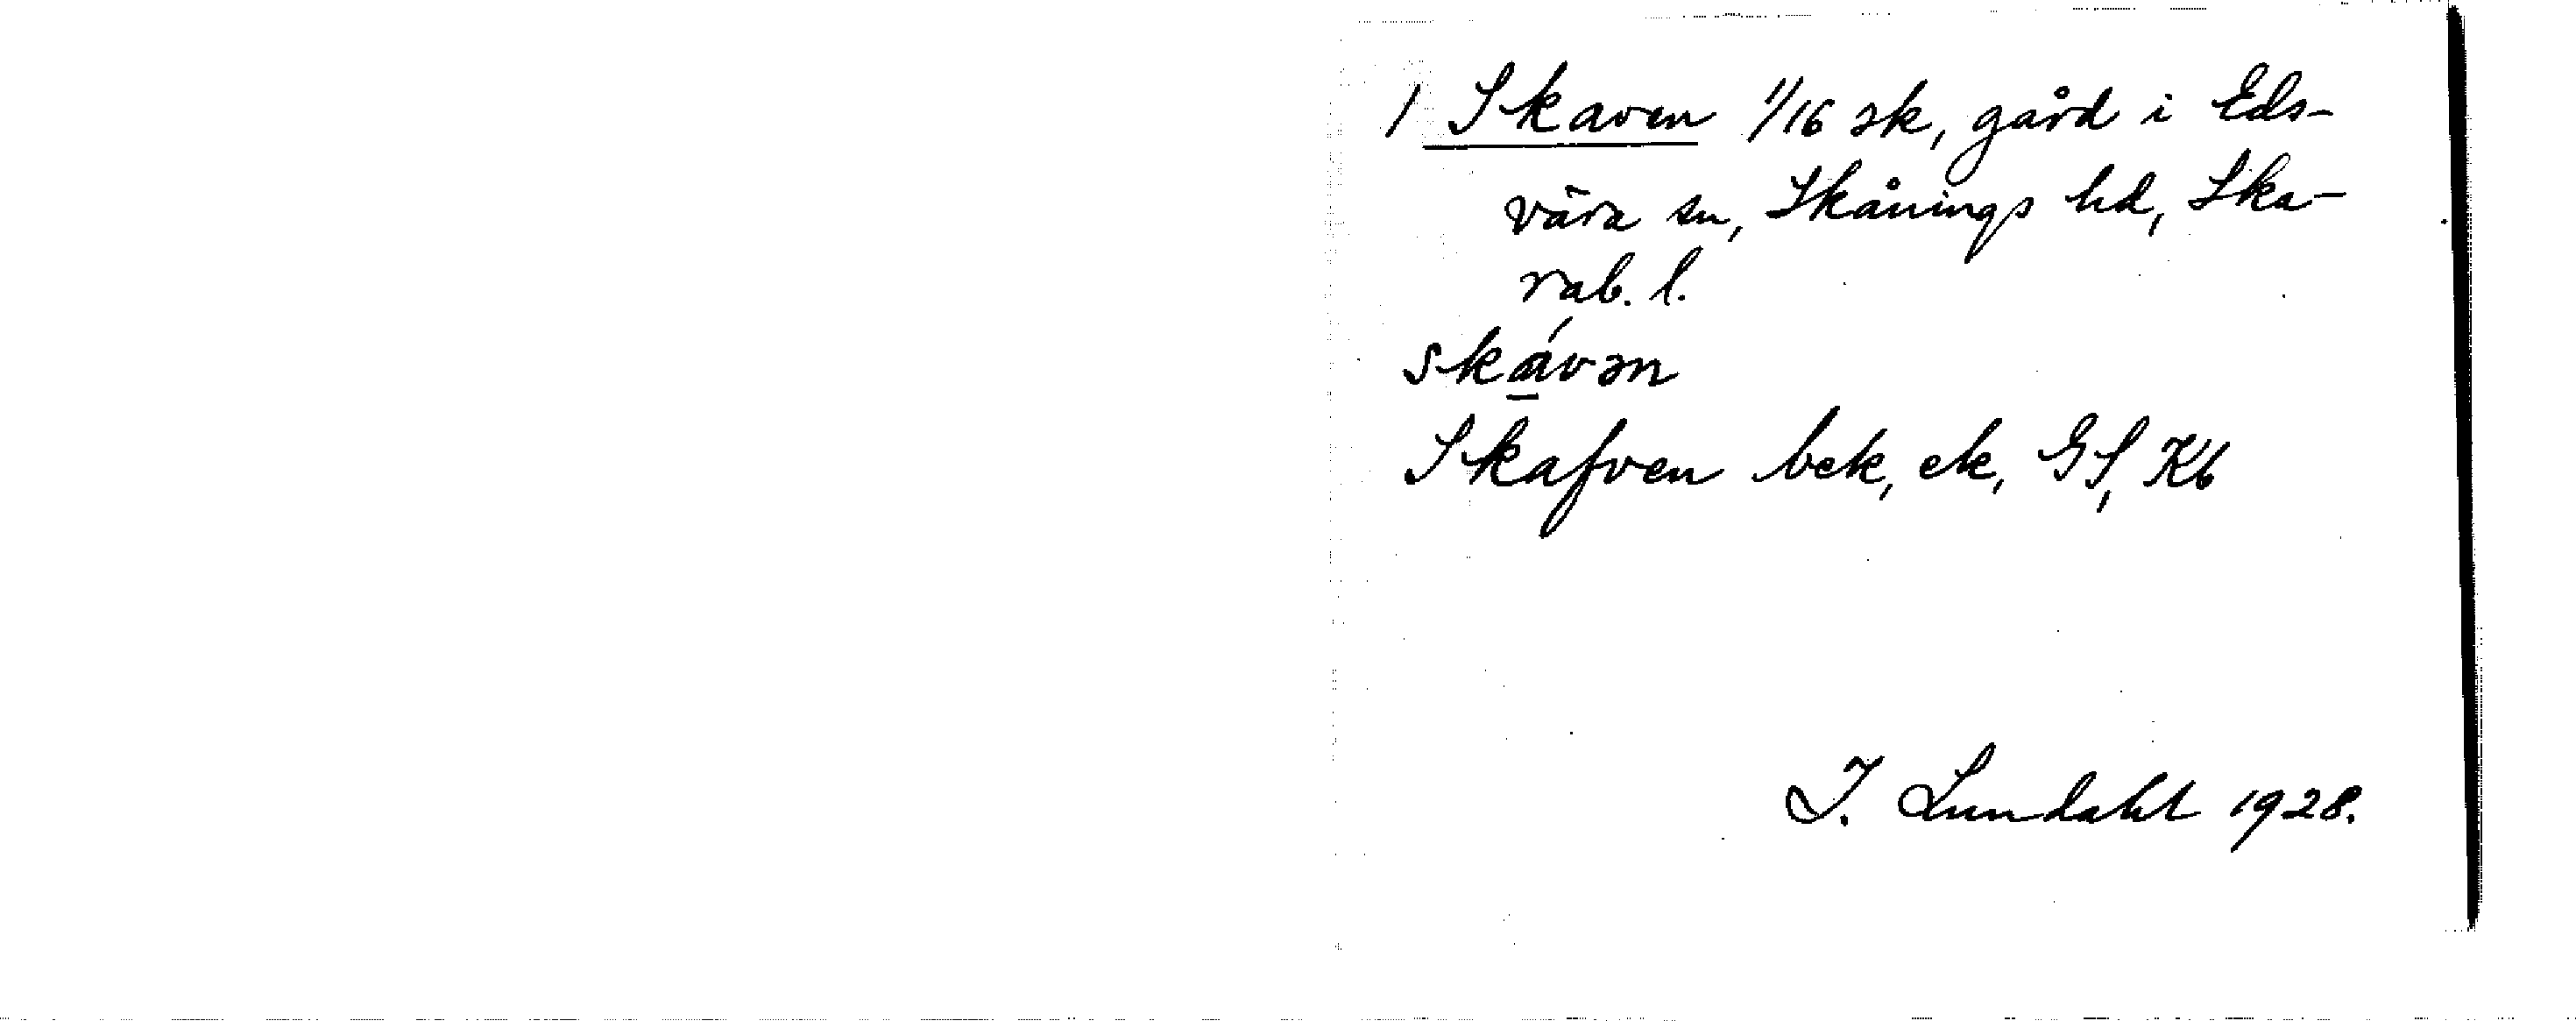 1 Skaven 1/16 sk, gård i Eds-
vära sn, Skånings hd, Ska-
rab. l.
skávən
Skafven bek, ek, GS, Kb
I. Lundahl 1928.